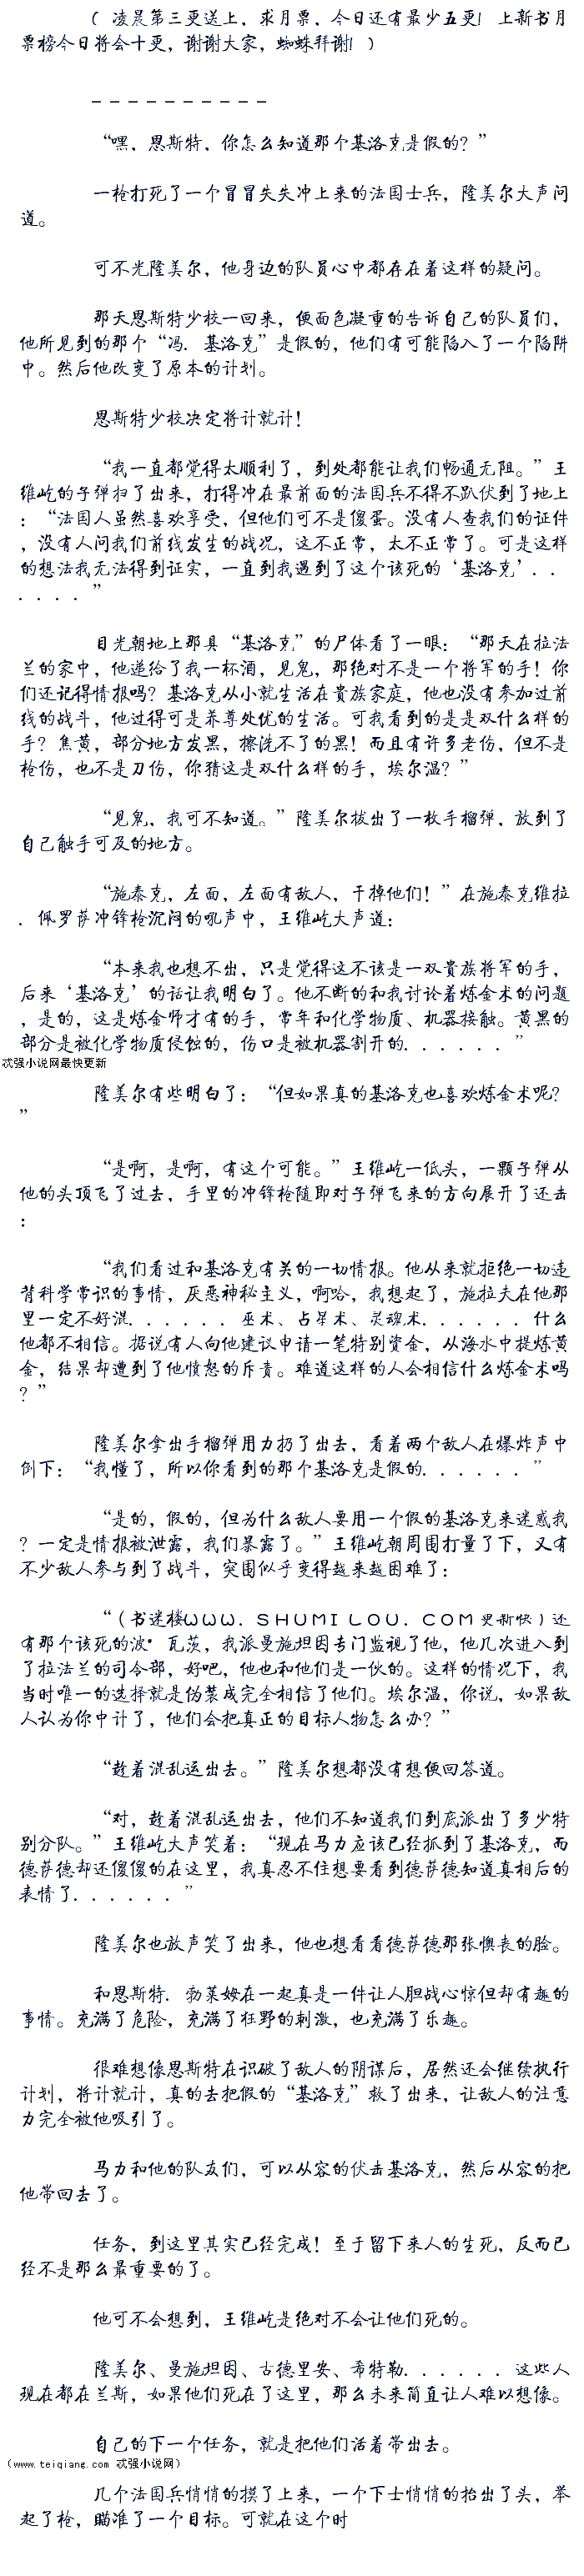 ( 凌晨第三更送上，求月票，今日还有最少五更！上新书月
票榜今日将会十更，谢谢大家，蜘蛛拜谢！)
----------
“嘿，恩斯特，你怎么知道那个基洛克是假的？”
一枪打死了一个冒冒失失冲上来的法国士兵，隆美尔大声问
道。
可不光隆美尔，他身边的队员心中都存在着这样的疑问。
那天恩斯特少校一回来，便面色凝重的告诉自己的队员们，
他所见到的那个“冯．基洛克”是假的，他们有可能陷入了一个陷阱
中。然后他改变了原本的计划。
恩斯特少校决定将计就计！
“我一直都觉得太顺利了，到处都能让我们畅通无阻。”王
维屹的子弹扫了出来，打得冲在最前面的法国兵不得不趴伏到了地上
：“法国人虽然喜欢享受，但他们可不是傻蛋。没有人查我们的证件
，没有人问我们前线发生的战况，这不正常，太不正常了。可是这样
的想法我无法得到证实，一直到我遇到了这个该死的‘基洛克’．．
．．．．”
目光朝地上那具“基洛克”的尸体看了一眼：“那天在拉法
兰的家中，他递给了我一杯酒，见鬼，那绝对不是一个将军的手！你
们还记得情报吗？基洛克从小就生活在贵族家庭，他也没有参加过前
线的战斗，他过得可是养尊处优的生活。可我看到的是是双什么样的
手？焦黄，部分地方发黑，擦洗不了的黑！而且有许多老伤，但不是
枪伤，也不是刀伤，你猜这是双什么样的手，埃尔温？”
“见鬼，我可不知道。”隆美尔拔出了一枚手榴弹，放到了
自己触手可及的地方。
“施泰克，左面，左面有敌人，干掉他们！”在施泰克维拉
．佩罗萨冲锋枪沉闷的吼声中，王维屹大声道：
“本来我也想不出，只是觉得这不该是一双贵族将军的手，
后来‘基洛克’的话让我明白了。他不断的和我讨论着炼金术的问题
，是的，这是炼金师才有的手，常年和化学物质、机器接触。黄黑的
部分是被化学物质侵蚀的，伤口是被机器割开的．．．．．．”
忒强小说网最快更新
隆美尔有些明白了：“但如果真的基洛克也喜欢炼金术呢？
”
“是啊，是啊，有这个可能。”王维屹一低头，一颗子弹从
他的头顶飞了过去，手里的冲锋枪随即对子弹飞来的方向展开了还击
：
“我们看过和基洛克有关的一切情报。他从来就拒绝一切违
背科学常识的事情，厌恶神秘主义，啊哈，我想起了，施拉夫在他那
里一定不好混．．．．．．巫术、占星术、灵魂术．．．．．．什么
他都不相信。据说有人向他建议申请一笔特别资金，从海水中提炼黄
金，结果却遭到了他愤怒的斥责。难道这样的人会相信什么炼金术吗
？”
隆美尔拿出手榴弹用力扔了出去，看着两个敌人在爆炸声中
倒下：“我懂了，所以你看到的那个基洛克是假的．．．．．．”
“是的，假的，但为什么敌人要用一个假的基洛克来迷惑我
？一定是情报被泄露，我们暴露了。”王维屹朝周围打量了下，又有
不少敌人参与到了战斗，突围似乎变得越来越困难了：
“（书迷楼ＷＷＷ．ＳＨＵＭＩＬＯＵ．ＣＯＭ更新快）还
有那个该死的波·瓦茨，我派曼施坦因专门监视了他，他几次进入到
了拉法兰的司令部，好吧，他也和他们是一伙的。这样的情况下，我
当时唯一的选择就是伪装成完全相信了他们。埃尔温，你说，如果敌
人认为你中计了，他们会把真正的目标人物怎么办？”
“趁着混乱运出去。”隆美尔想都没有想便回答道。
“对，趁着混乱运出去，他们不知道我们到底派出了多少特
别分队。”王维屹大声笑着：“现在马力应该已经抓到了基洛克，而
德萨德却还傻傻的在这里，我真忍不住想要看到德萨德知道真相后的
表情了．．．．．．”
隆美尔也放声笑了出来，他也想看看德萨德那张懊丧的脸。
和恩斯特．勃莱姆在一起真是一件让人胆战心惊但却有趣的
事情。充满了危险，充满了狂野的刺激，也充满了乐趣。
很难想像恩斯特在识破了敌人的阴谋后，居然还会继续执行
计划，将计就计，真的去把假的“基洛克”救了出来，让敌人的注意
力完全被他吸引了。
马力和他的队友们，可以从容的伏击基洛克，然后从容的把
他带回去了。
任务，到这里其实已经完成！至于留下来人的生死，反而已
经不是那么最重要的了。
他可不会想到，王维屹是绝对不会让他们死的。
隆美尔、曼施坦因、古德里安、希特勒．．．．．．这些人
现在都在兰斯，如果他们死在了这里，那么未来简直让人难以想像。
自己的下一个任务，就是把他们活着带出去。
（www.teiqiang.com 忒强小说网）
几个法国兵悄悄的摸了上来，一个下士悄悄的抬出了头，举
起了枪，瞄准了一个目标。可就在这个时